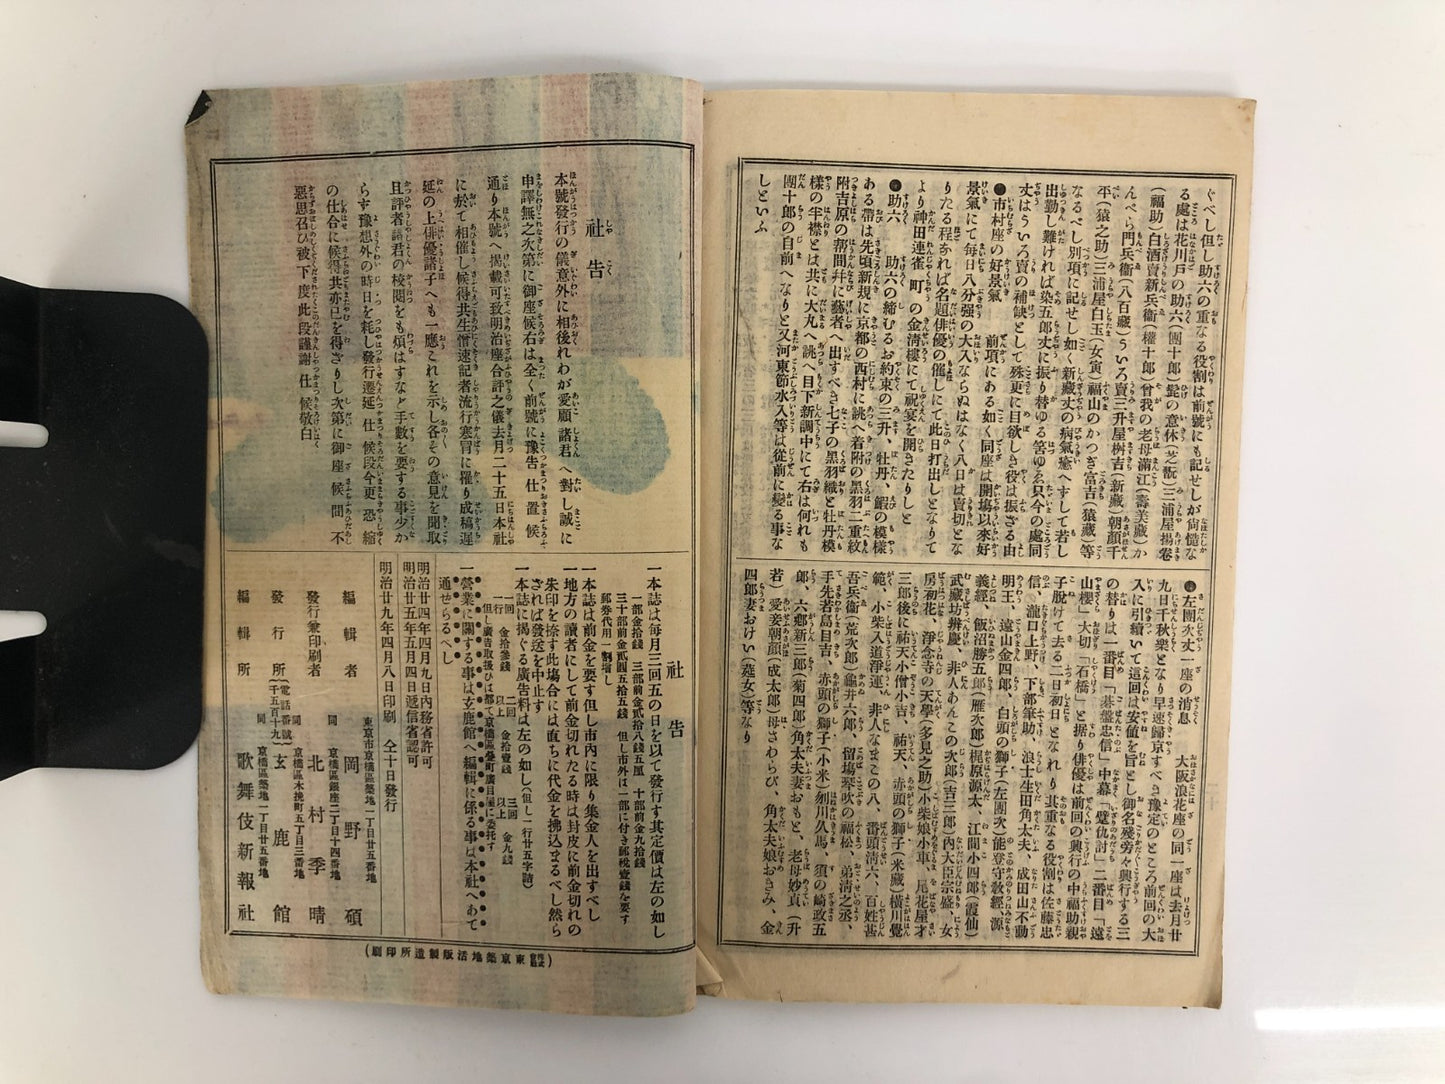 ぐべし但し助六の重なる役割は前號にも記せしが尙慥な
る處は花川戸の助六(團十郎)髭の意休(芝翫)三浦屋揚卷
(福助)白酒賣新兵衞(權十郎)曾我の老母滿江(壽美藏)か
んぺら門兵衞(八百藏)ういろう賣三井屋桝吉(新藏)朝顔千
平(猿之助)三浦屋白玉(女寅)福山のかつぎ富吉(猿藏)等
なるべし別項に記せし如く新藏丈の病氣癒へずして若し
出勤し難ければ染五郎丈に振り替ゆる筈ゆゑ只今の處同
丈はういろう賣の補缺として殊更に目欲しき役は振ざる由
●市村座の好景氣 前項にある如く同座は開塲以來好
景氣にて每日八分强の大入ならぬはなく八日は賣切とな
りたる程なれば名題俳優の催しにて此日打出しとなりて
より神田連雀町の金淸樓にて祝宴を開きたりしと
●助六 助六の締むるお約束の三升、牡丹、鰕の模樣
ある帶は先頃新規に京都の西村に誂へ着附の黑羽二重紋
附吉原の帮間幷に藝者へ出すべき七子の黑羽織と牡丹模
樣の半襟とは共に大丸へ誂へ目下新調中にて右は何れも
團十郎の自前へなりと又河東節水入等は從前に變る事な
しといふ
●左團次丈一座の消息 大阪浪花座の同一座は去月廿
九日千秋樂となり早速歸京すべき豫定のところ前回の大
入に引續いて這回は安値を旨とし御名殘旁々興行する三
の替りは一番目「碁盤忠信」中幕「躄仇討」二番目「遠
山櫻」大切「石橋」と据り俳優は前回の興行の中福助親
子脱けて去る二日初日となれり其重なる役割は佐藤忠
信、瀧口上野、下部筆助、浪士生田角太夫、成田山不動
明王、遠山金四郎、白頭の獅子(左團次)能登守敎經源
義經、飯沼勝五郎(雁次郎)梶原源太、江間小四郎(霞仙)
武藏坊辨慶、非人あんこの次郎(吉三郎)內大臣宗盛、女
房初花、淨念寺の天學(多見之助)小柴娘小車、尾花屋才
三郎後に祐天小僧小吉、祐天、赤頭の獅子(米藏)橫川覺
範、小柴入道淨運、非人なまこの八、番頭淸六、百姓甚
吾兵衞(荒次郎)龜井六郎、留塲琴吹の福松、弟淸之丞、
手先若島目吉、赤頭の獅子(小米)刎川久馬、須の崎政五
郎、六鄕新三郎(菊四郎)角太夫妻おもと、老母妙貞(升
若)愛妾朝顔(成太郎)母さわらび、角太夫娘おきみ、金
四郎妻おけい(莚女)等なり
社告
本號發行の儀意外に相後れわが愛顧諸君へ對し誠に
申譯無之次第に御座候右は全く前號に豫告仕置候
通り本號へ揭載可致明治座合評之儀去月二十五日本社
に於て相催し候得共生憎速記者流行寒冒に罹り成稿遲
延の上俳優諸子へも一應これを示し各その意見を聞取
且評者諸君の校閱をも煩はすなど手數を要する事少か
らず豫想外の時日を耗し發行遷延仕候段今更恐縮
の仕合に候得共亦已を得ざりし次第に御座候間不
惡思召ひ被下度此段謹謝仕候敬白
社告
一本誌は每月三回五の日を以て發行す其定價は左の如し
一部金拾錢 三部前金貳拾八錢五厘 十部前金九拾錢
三十部前金貳圓五拾五錢 但し市外は一部に付き郵稅壹錢を要す
郵券代用一割增し
一本誌は前金を要す但し市內に限り集金人を出すべし
一地方の讀者にして前金切れたる時は封皮に前金切れの
朱印を捺す此塲合には直ちに代金を拂込まるべし然ら
ざれば發送を中止す
一本誌に揭ぐる廣告料は左の如し(但し一行廿五字詰)
一回 一行 金拾參錢 二回以上 金拾壹錢 三回以上 金九錢
但し廣告取扱ひは都て京橋區疊町廣目屋に委托す
一營業に關する事は玄鹿館へ編輯に係る事は本社へあて
通ぜらるべし
明治廿四年四月九日內務省許可
明治廿五年五月四日遞信省認可
明治廿九年四月八日印刷 仝十日發行
東京市京橋區築地一丁目廿五番地
編輯者 岡野碩
同 京橋區銀座二丁目十四番地
發行兼印刷者 北村季晴
同 京橋區木挽町五丁目三番地
發行所(電話番號千五百十九) 玄鹿館
同 京橋區築地一丁目廿五番地
編輯所 歌舞伎新報社
(株式會社東京築地活版製造所印刷)